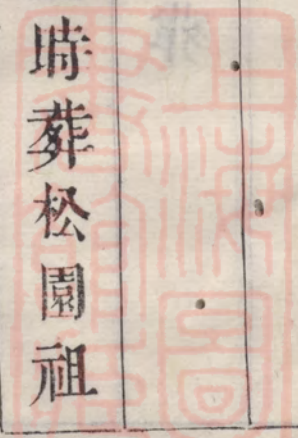 時葬松園祖